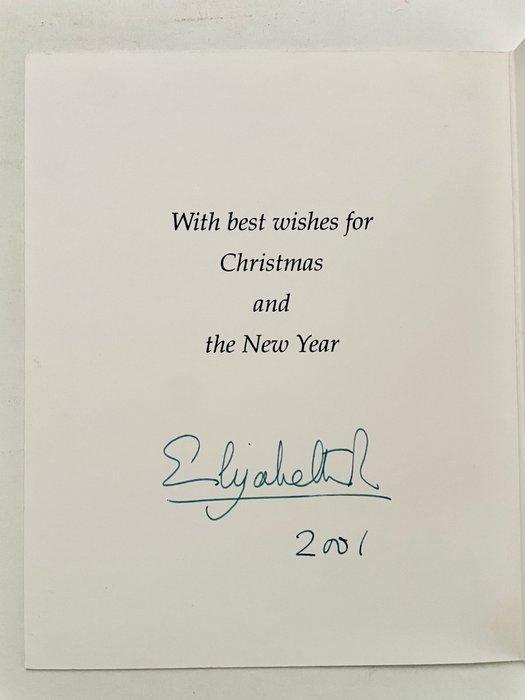 With best wishes for
Christmas
and
the New Year
Elizabeth R
2001